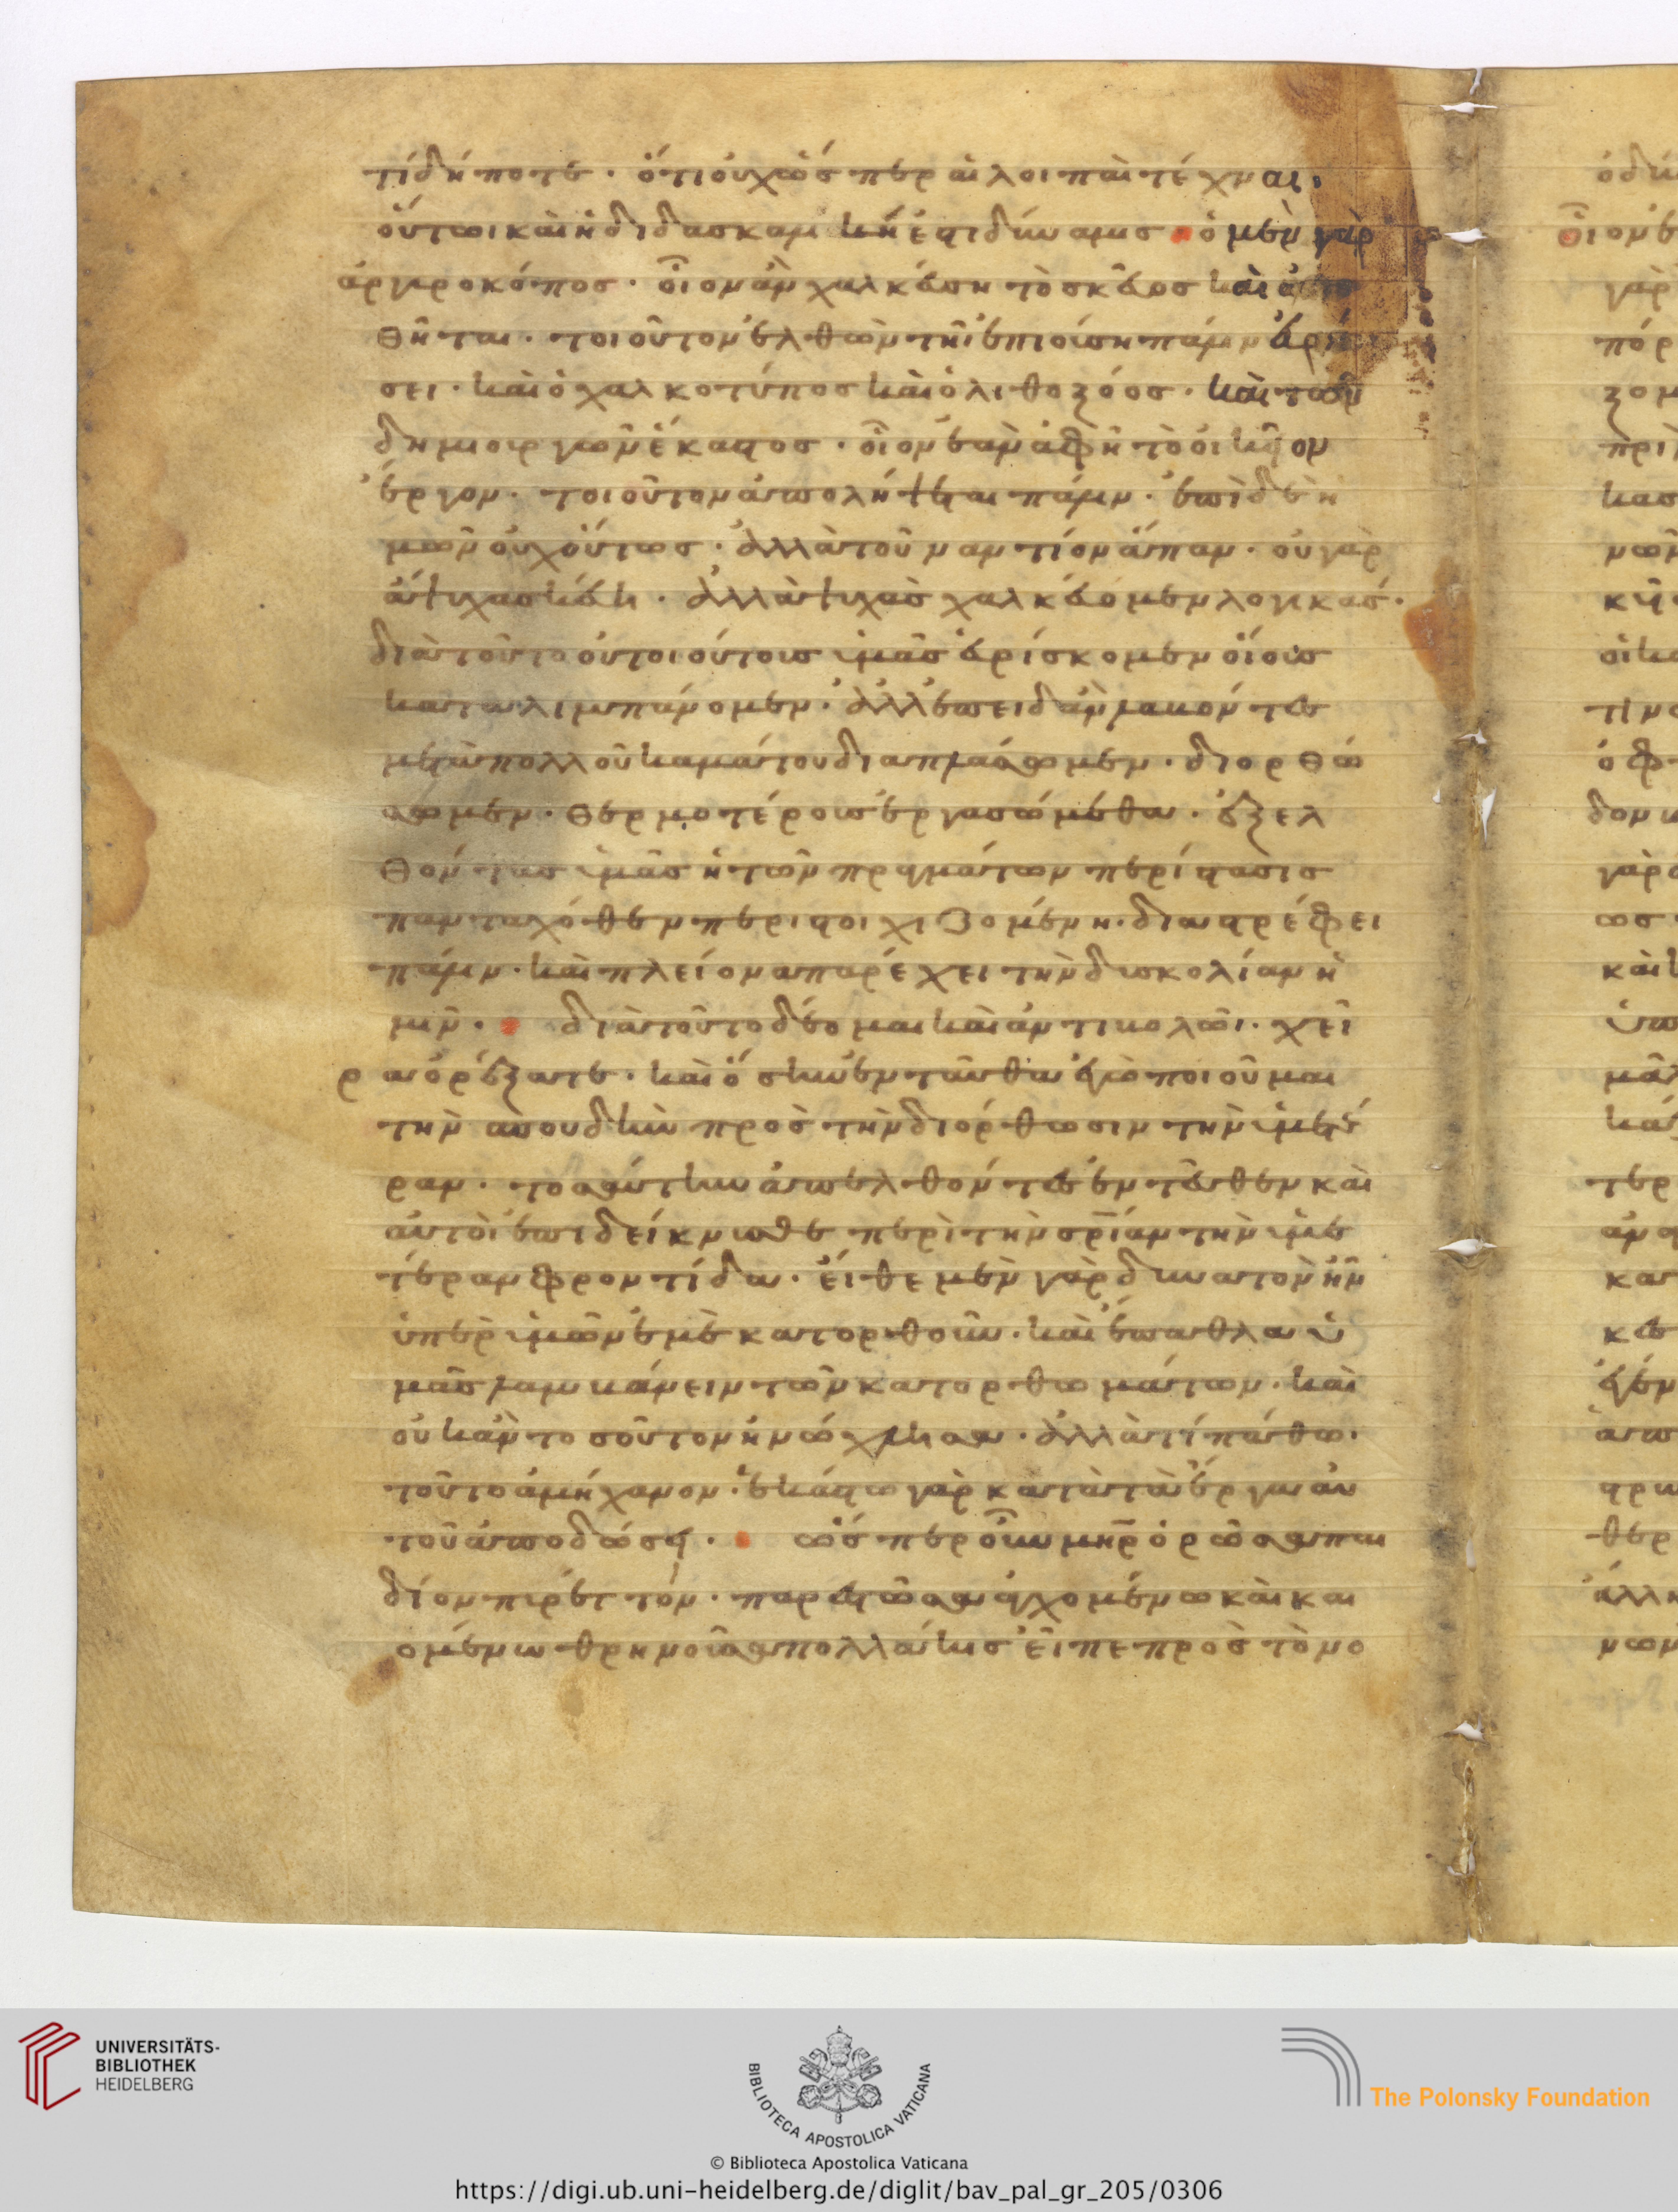 τί δήποτε· ὅτι οὐχ ὥσπερ αἱ λοιπαὶ τέχναι,
οὕτω καὶ ἡ διδασκαλικὴ ἐστι δύναμις ὁ μὲν γὰρ
ἀργυροκόπος· οἷον ἂν χαλκεύση τὸ σκεῦος καὶ
θῆται· τοιοῦτον ἐλθὼν τῆ ἐπιούση πάλιν εὑρή
σει· καὶ ὁ χαλκοτύπος καὶ ὁ λιθοξόος· καὶ τῶν
δημιουργῶν ἕκαστος· οἷον ἐὰν ἀφῆ τὸ οἰκεῖον
ἔργον· τοιοῦτον ἀπολήψεται πάλιν· ἐπὶ δὲ ἡ
μῶν οὐχ οὕτως· ἀλλὰ τοὐναντίον ἅπαν· οὐ γὰρ
ἀψύχα σκεύη· ἀλλὰ ψυχὰς χαλκεύομεν λογικάς·
διὰ τοῦτο οὐ τοιούτους ὑμᾶς εὑρίσκομεν οἵους
καταλιμπάνομεν· ἀλλ' ἐπειδὰν λαβόντες
μετὰ πολλοῦ καμάτου διαπλάσωμεν· διορθώ
σωμεν· θερμοτέρους ἐργασώμεθα· ἐξελ
θόντας ὑμᾶς ἡ τῶν πραγμάτων περίστασις
πανταχόθεν περιστοιχιζομένη· διαστρέφει
πάλιν· καὶ πλείονα παρέχει τὴν δυσκολίαν ἡ
μῖν· διὰ τοῦτο δέομαι καὶ ἀντιβολῶ· χεῖ
ρα ὀρέξατε· καὶ ὅσην ἐνταῦθα ἐγὼ ποιοῦμαι
τὴν σπουδὴν πρὸς τὴν διόρθωσιν τὴν ὑμετέ
ραν· τοσαύτην ἀπελθόντες ἐντεῦθεν καὶ
αὐτοὶ ἐπιδείκνυσθε περὶ τὴν σρίαν τὴν ὑμε
τέραν φροντίδα· εἴθε μὲν γὰρ δυνατὸν ἦν
ὑπὲρ ὑμῶν ἐμὲ κατορθοῦν· καὶ ἔπαθλα ὑ
μᾶς λαμβάνειν τῶν κατορθωμάτων· καὶ
οὐκ ἂν τοσοῦτον ἠνώχλησα· ἀλλὰ τί πάθω·
τοῦτο ἀμήχανον· ἑκάστω γὰρ κατὰ τὰ ἔργα αὐ
τοῦ ἀποδώσει· ὥσπερ οὖν μηρ ὁρῶσα παι
δίον πυρέττον· παρεστῶσα ἀγχομένω καὶ και
ομένω θρηνοῦσα πολλάκις εἶπε πρὸς τὸ νο
UNIVERSITÄTS-
BIBLIOTHEK
HEIDELBERG
BIBLIOTECA APOSTOLICA VATICANA
The Polonsky Foundation
© Biblioteca Apostolica Vaticana
https://digi.ub.uni-heidelberg.de/diglit/bav_pal_gr_205/0306